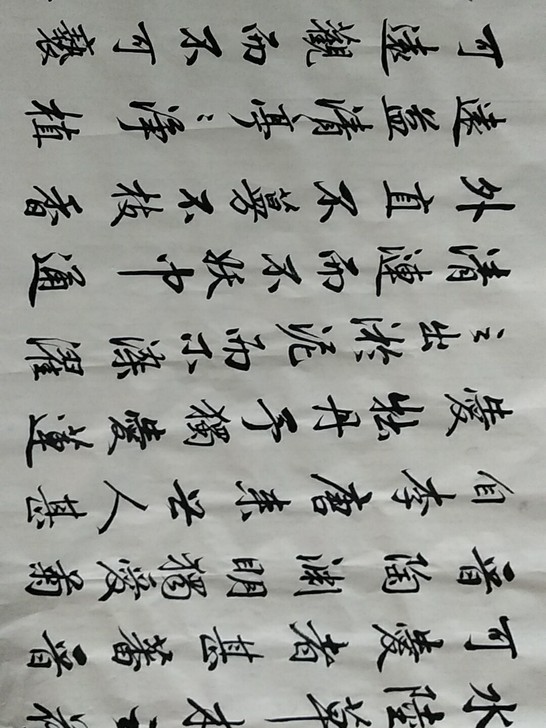 水陸草木之花
可愛者甚蕃晉
晉陶淵明獨愛菊
自李唐來世人甚
愛牡丹予獨愛蓮
之出淤泥而不染濯
清漣而不妖中通
外直不蔓不枝香
遠益清亭々淨植
可遠觀而不可褻